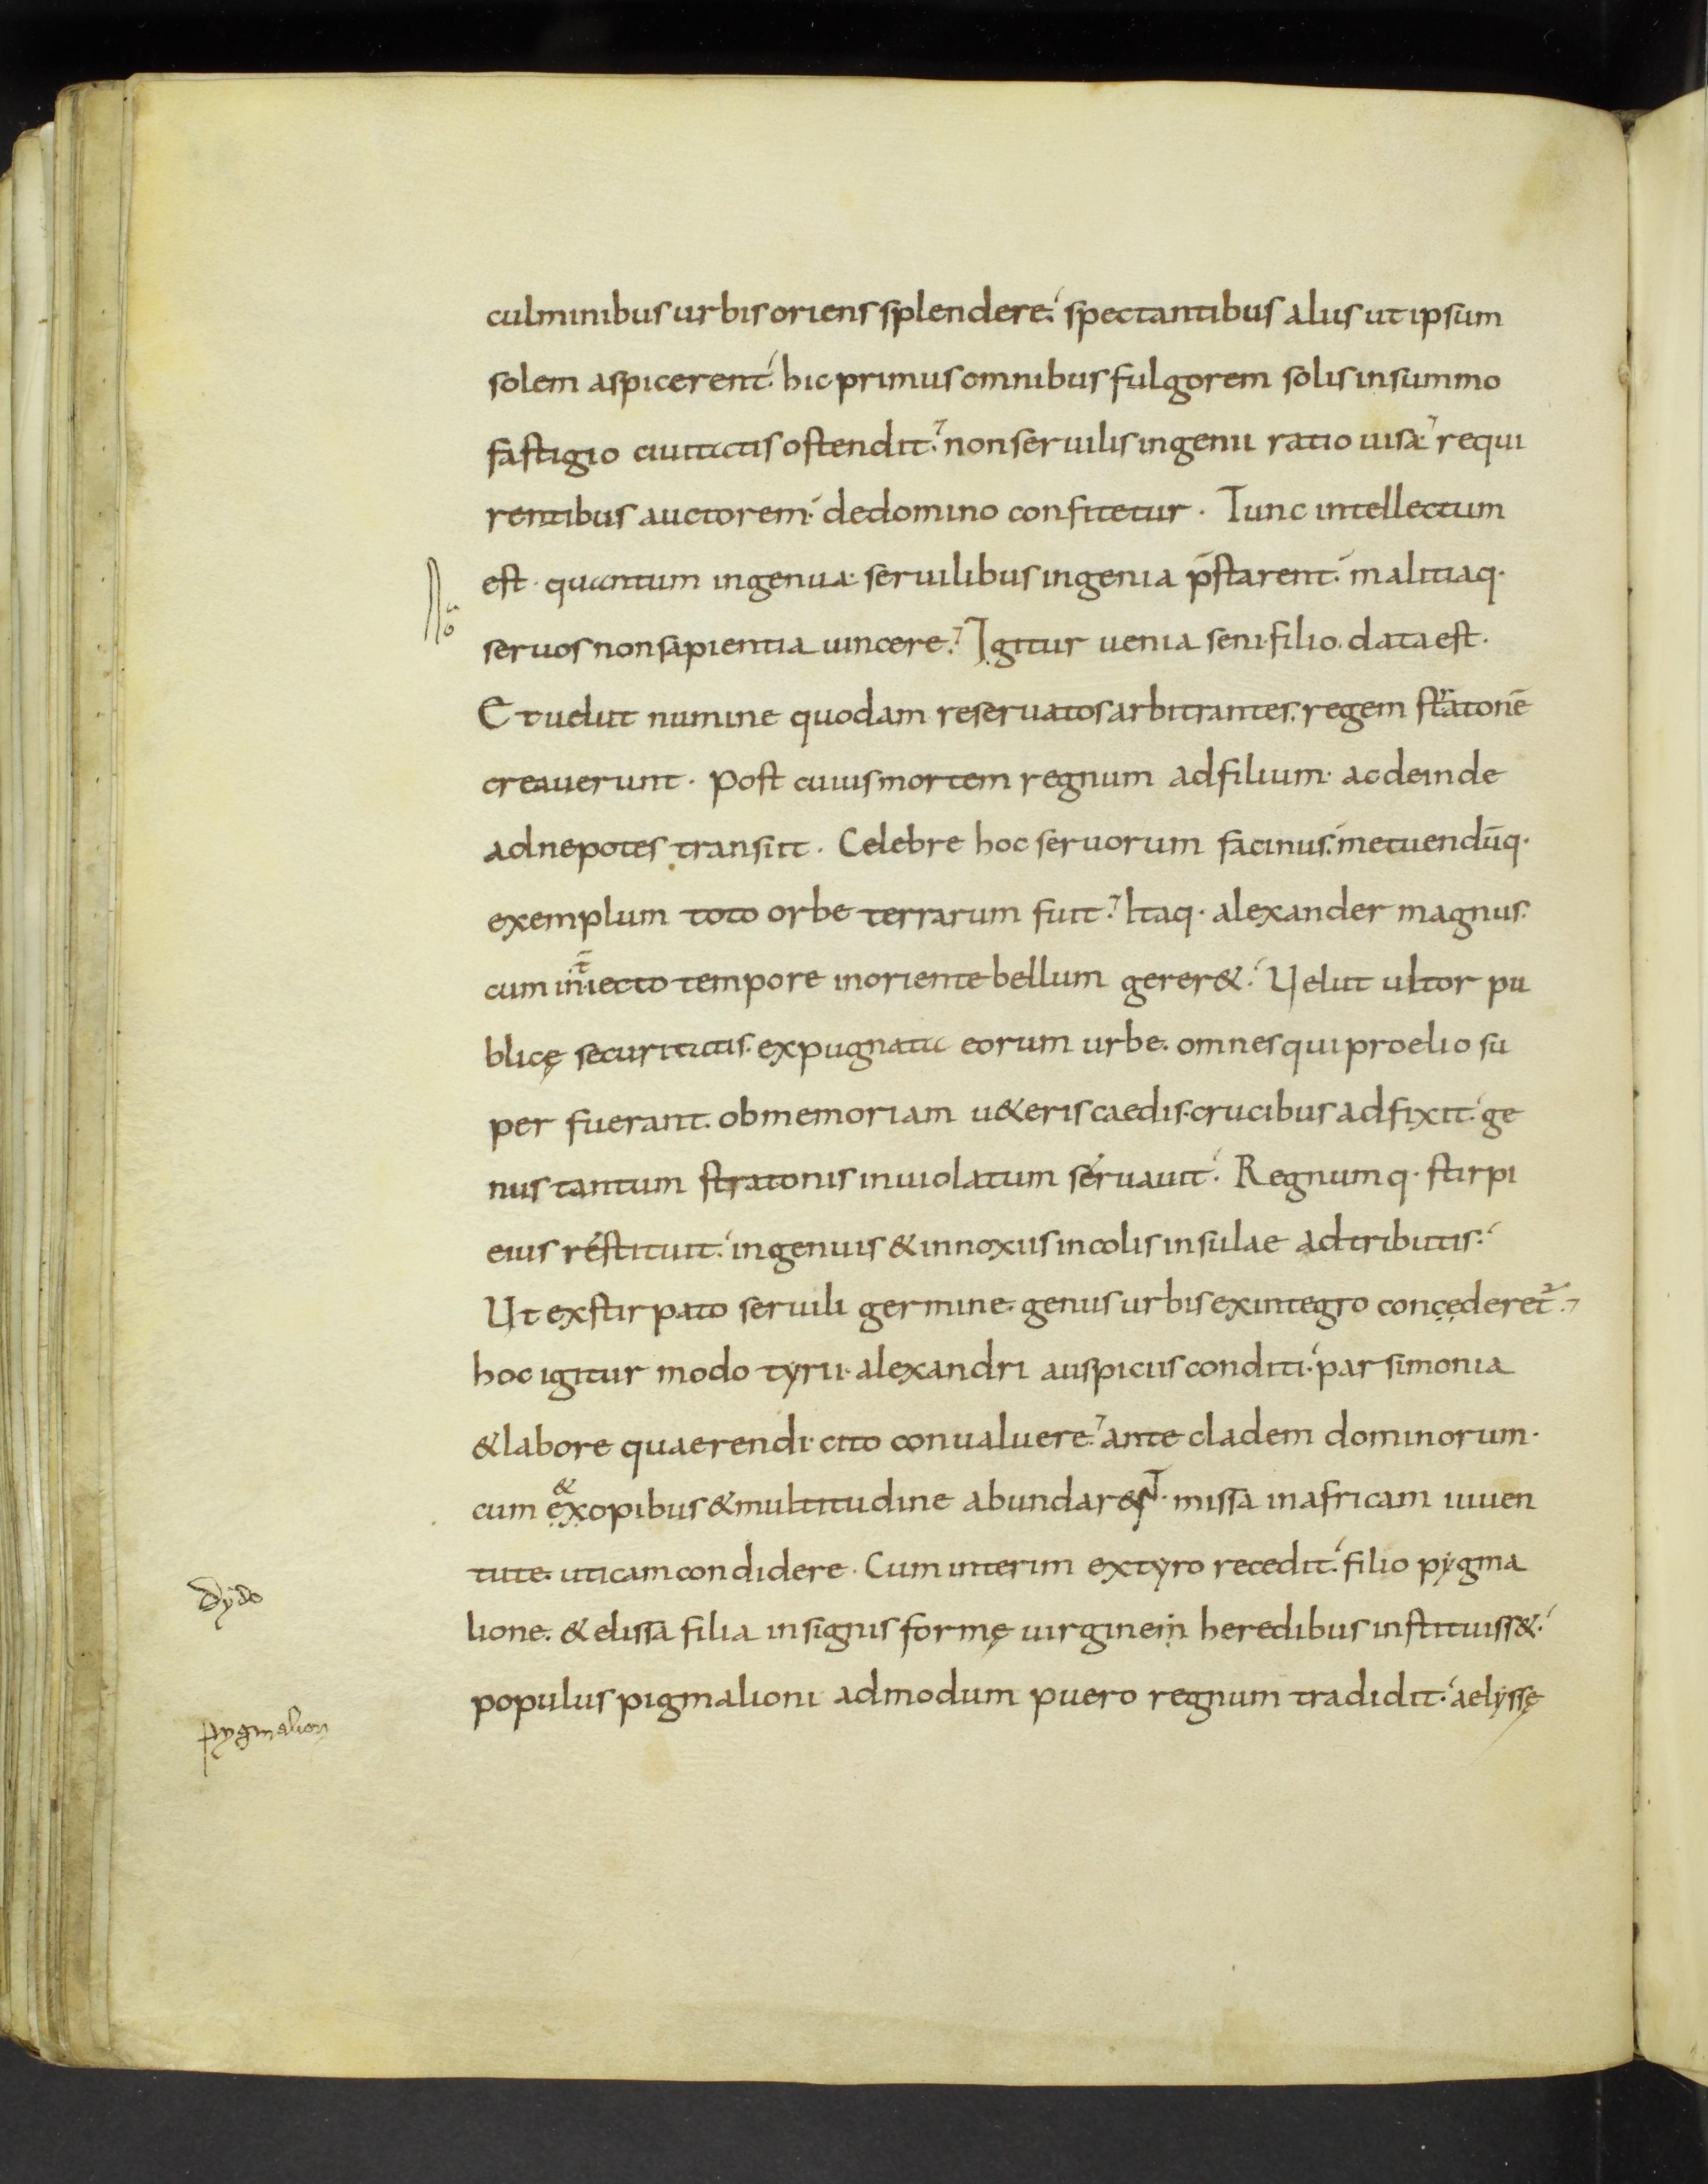 culminibus urbis oriens splendere: spectantibus aliis ut ipsum
solem aspicerent: hic primus omnibus fulgorem solis in summo
fastigio ciuitatis ostendit: non seruilis ingenii ratio uisa: requi
rentibus auctorem: de domino confitetur. Tunc intellectum
est. quantum ingenua seruilibus ingenia p̄starent: malitiaq.
seruos non sapientia uincere: Igitur uenia seni. filio. data est.
Et uelut numine quodam reseruatos arbitrantes. regem stratonē
creauerunt. Post cuius mortem regnum ad filium. ac deinde
ad nepotes transiit. Celebre hoc seruorum facinus: metuendūq.
exemplum toto orbe terrarum fuit: Itaq. alexander magnus.
cum iniecto tempore in oriente bellum gerer&: Uelut ultor pu
blicę securitatis. expugnata eorum urbe. omnes qui proelio su
per fuerant. ob memoriam u&eris caedis. crucibus adfixit: ge
nus tantum stratonis inuiolatum seruauit: Regnumq. stirpi
eius restituit: ingenuis & innoxiis incolis insulae adtributis:
Ut exstirpato seruili germine. genus urbis ex integro concederet᷑:
hoc igitur modo tyrii. alexandri auspiciis conditi: parsimonia
& labore quaerendi. cito conualuere: ante cladem dominorum.
&
cum ex opibus & multitudine abundar&NT. missa in africam iuuen
tute. uticam condidere. Cum interim ex tyro recedit: filio pygma
dydo
lione. & elissa filia insignis formę uirginem heredibus instituiss&:
populus pigmalioni admodum puero regnum tradidit: aelyssę
pygmalion